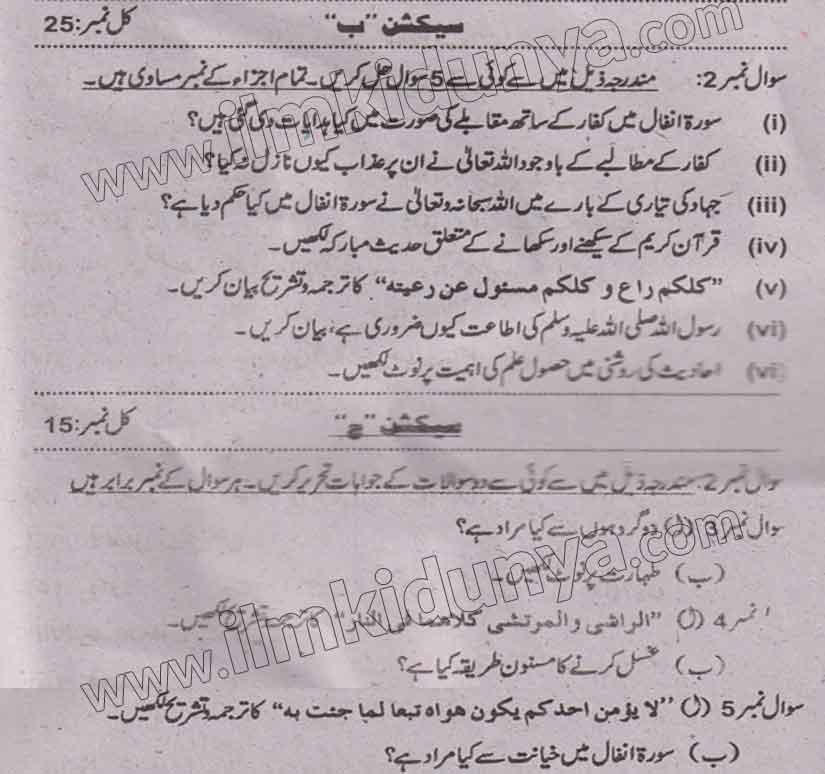 سیکشن "ب" کل نمبر: 25
سوال نمبر 2: مندرجہ ذیل میں سے کوئی سے 5 سوال حل کریں۔ تمام اجزاء کے نمبر مساوی ہیں۔
(i) سورۃ انفال میں کفار کے ساتھ مقابلے کی صورت میں کیا ہدایات دی گئی ہیں؟
(ii) کفار کے مطالبے کے باوجود اللہ تعالیٰ نے ان پر عذاب کیوں نازل نہ کیا؟
(iii) جہاد کی تیاری کے بارے میں اللہ سبحانہ وتعالیٰ نے سورۃ انفال میں کیا حکم دیا ہے؟
(iv) قرآن کریم کے سیکھنے اور سکھانے کے متعلق حدیث مبارکہ لکھیں۔
(v) "کلکم راع و کلکم مسئول عن رعیته" کا ترجمہ و تشریح بیان کریں۔
(vi) رسول اللہ صلی اللہ علیہ وسلم کی اطاعت کیوں ضروری ہے، بیان کریں۔
(vii) احادیث کی روشنی میں حصول علم کی اہمیت پر نوٹ لکھیں۔
سیکشن "ج" کل نمبر: 15
سوال نمبر 2: مندرجہ ذیل میں سے کوئی سے دو سوالات کے جوابات تحریر کریں۔ ہر سوال کے نمبر برابر ہیں
سوال نمبر 3 (ل) دو گروہوں سے کیا مراد ہے؟
(ب) طہارت پر نوٹ لکھیں۔
نمبر 4 (ل) "الراشی والمرتشی کلاهما فی النار" کا ترجمہ تشریح لکھیں۔
(ب) غسل کرنے کا مسنون طریقہ کیا ہے؟
سوال نمبر 5 (ل) "لا یؤمن احدکم یکون هواه تبعا لما جئت به" کا ترجمہ و تشریح لکھیں۔
(ب) سورۃ انفال میں خیانت سے کیا مراد ہے؟
www.ilmkidunya.com
www.ilmkidunya.com